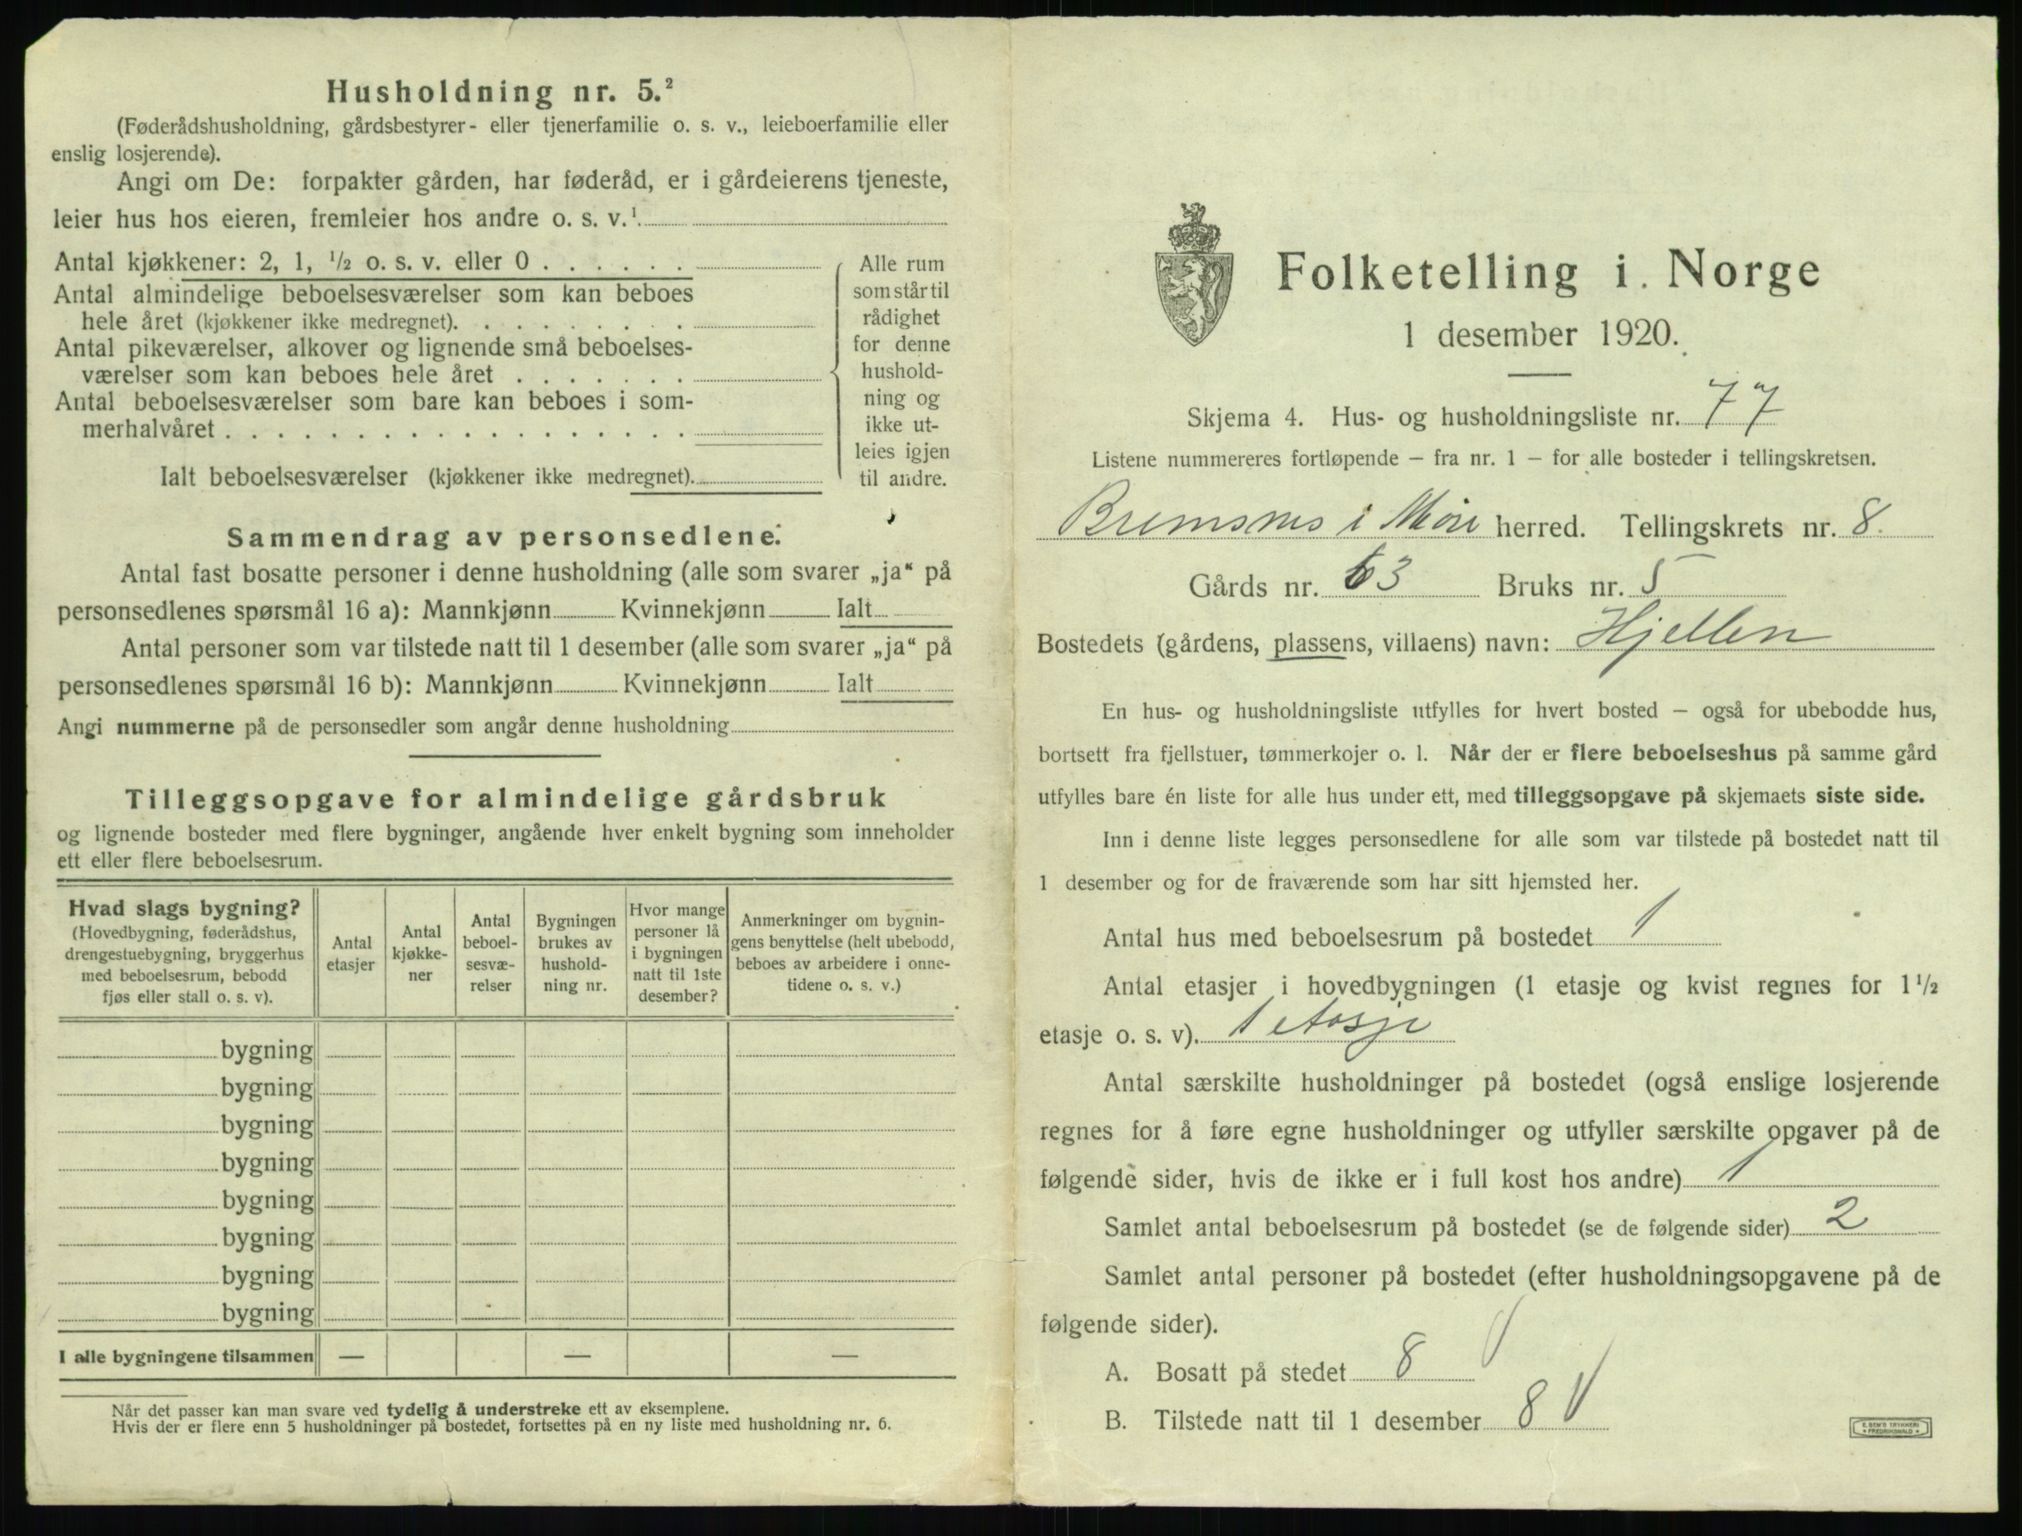 Husholdning nr. 5.²
(Føderådshusholdning, gårdsbestyrer- eller tjenerfamilie o. s. v., leieboerfamilie eller
enslig losjerende).
Angi om De: forpakter gården, har føderåd, er i gårdeierens tjeneste,
leier hus hos eieren, fremleier hos andre o. s. v.¹
Antal kjøkkener: 2, 1, ½ o. s. v. eller 0 . . . . . .
Antal almindelige beboelsesværelser som kan beboes
hele året (kjøkkener ikke medregnet). . . . . . . . .
Antal pikeværelser, alkover og lignende små beboelses-
værelser som kan beboes hele året . . . . . . .
Antal beboelsesværelser som bare kan beboes i som-
merhalvåret . . . . . . . . . . . . . . . . . .
Ialt beboelsesværelser (kjøkkener ikke medregnet).
Alle rum
som står til
rådighet
for denne
hushold-
ning og
ikke ut-
leies igjen
til andre.
Sammendrag av personsedlene.
Antal fast bosatte personer i denne husholdning (alle som svarer „ja“ på
personsedlenes spørsmål 16 a): Mannkjønn Kvinnekjønn Ialt
Antal personer som var tilstede natt til 1 desember (alle som svarer „ja“ på
personsedlenes spørsmål 16 b): Mannkjønn Kvinnekjønn Ialt
Angi nummerne på de personsedler som angår denne husholdning
Tilleggsopgave for almindelige gårdsbruk
og lignende bosteder med flere bygninger, angående hver enkelt bygning som inneholder
ett eller flere beboelsesrum.
Hvad slags bygning?
(Hovedbygning, føderådshus,
drengestuebygning, bryggerhus
med beboelsesrum, bebodd
fjøs eller stall o. s. v).
Antal
etasjer
Antal
kjøkke-
ner
Antal
beboel-
sesvæ-
relser
Bygningen
brukes av
hushold-
ning nr.
Hvor mange
personer lå
i bygningen
natt til 1ste
desember?
Anmerkninger om bygnin-
gens benyttelse (helt ubebodd,
beboes av arbeidere i onne-
tidene o. s. v.)
bygning
bygning
bygning
bygning
bygning
bygning
bygning
bygning
I alle bygningene tilsammen — — —
Når det passer kan man svare ved tydelig å understreke ett av eksemplene.
Hvis der er flere enn 5 husholdninger på bostedet, fortsettes på en ny liste med husholdning nr. 6.
Folketelling i Norge
1 desember 1920.
Skjema 4. Hus- og husholdningsliste nr. 77
Listene nummereres fortløpende – fra nr. 1 – for alle bosteder i tellingskretsen.
Bremsnes i Møre herred. Tellingskrets nr. 8.
Gårds nr. 63 Bruks nr. 5
Bostedets (gårdens, plassens, villaens) navn: Hjellen
En hus- og husholdningsliste utfylles for hvert bosted – også for ubebodde hus,
bortsett fra fjellstuer, tømmerkojer o. l. Når der er flere beboelseshus på samme gård
utfylles bare én liste for alle hus under ett, med tilleggsopgave på skjemaets siste side.
Inn i denne liste legges personsedlene for alle som var tilstede på bostedet natt til
1 desember og for de fraværende som har sitt hjemsted her.
Antal hus med beboelsesrum på bostedet 1
Antal etasjer i hovedbygningen (1 etasje og kvist regnes for 1½
etasje o. s. v). 1 etasje
Antal særskilte husholdninger på bostedet (også enslige losjerende
regnes for å føre egne husholdninger og utfyller særskilte opgaver på de
følgende sider, hvis de ikke er i full kost hos andre) 1
Samlet antal beboelsesrum på bostedet (se de følgende sider) 2
Samlet antal personer på bostedet (efter husholdningsopgavene på de
følgende sider).
A. Bosatt på stedet 8
B. Tilstede natt til 1 desember 8
E. SEM'S TRYKKERI
FREDRIKSHALD